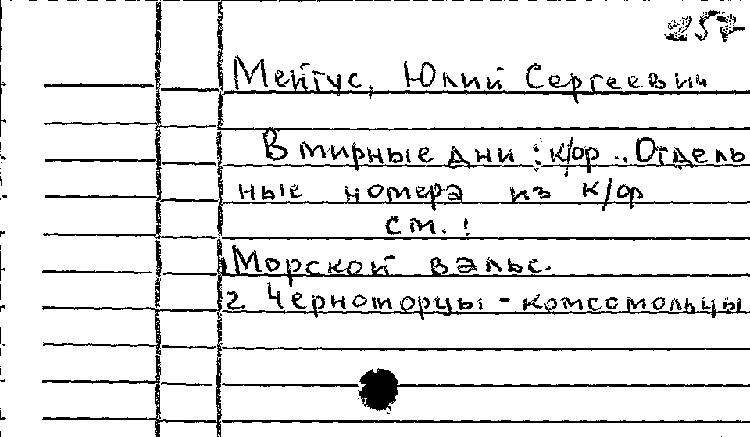 257
Мейтус, Юлий Сергеевич
В мирные дни : к/ор .. Отдель
ные номера из к/ор
см. :
Морской вальс.
2 Черноморцы - комсомольцы